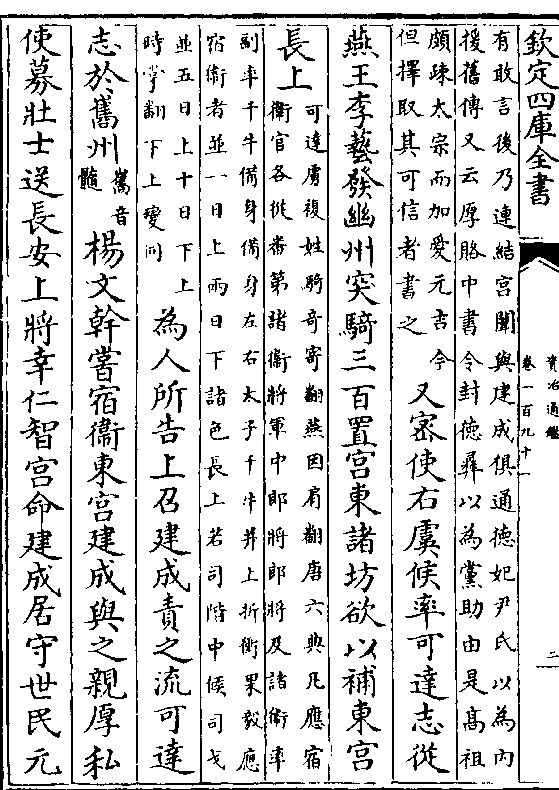 欽定四庫全書
資治通鑑
卷一百九十一
二
有敢言後乃連結宮闈與建成俱通德妃尹氏以為內
後舊傳又云厚賂中書令封德彛以為黨助由是高祖
頗疎太宗而加愛元吉今
但擇取其可信者書之
又密使右虞候率可達志從
燕王李藝發幽州突騎三百置宮東諸坊欲以補東宮
長上
可達虜複姓騎奇寄翻燕因肩翻唐六典凡應宿
衛官各從番第諸衛將軍中郎將郎將及諸衛率
副率千牛備身備身左右太子千牛并上折衝果毅應
宿衛者並一日上兩日下諸色長上若司階中候司戈
並五日上十日下上
時掌翻下上變同
為人所告上召建成責之流可達
志於巂州
巂音
髓
楊文幹嘗宿衛東宮建成與之親厚私
使募壯士送長安上將幸仁智宮命建成居守世民元